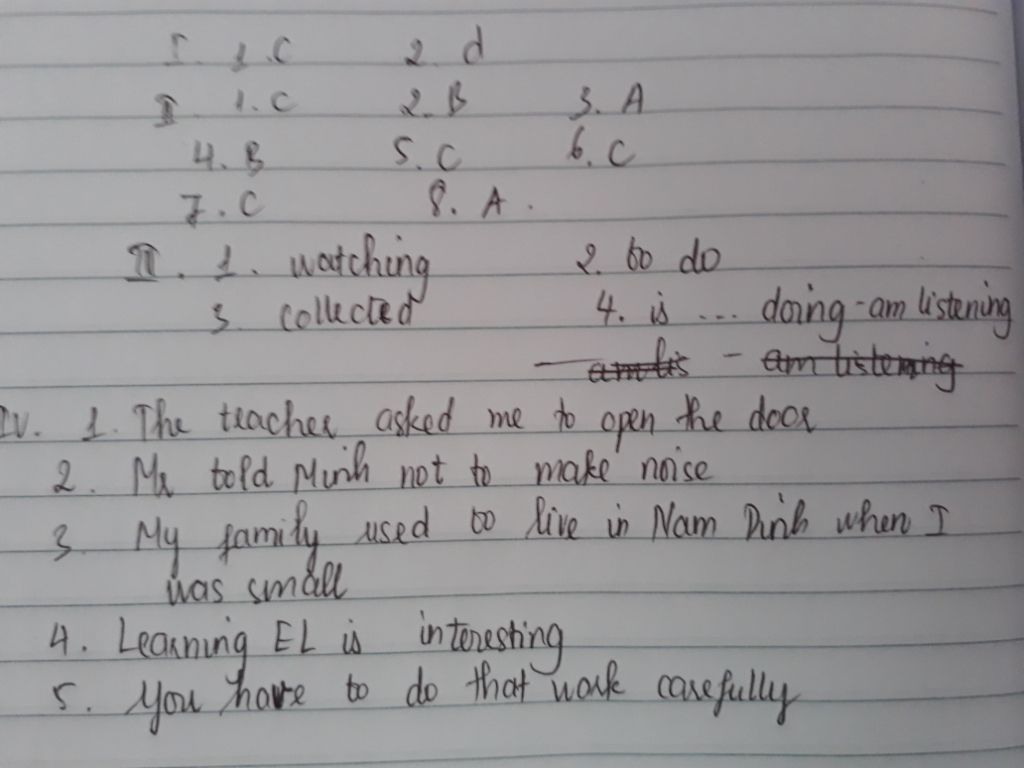 I. 1. C 2. d
II 1. C 2. B 3. A
4. B 5. C 6. C
7. C 8. A.
III. 1. watching 2. to do
3. collected 4. is ... doing - am listening
- am lis - am listening
IV. 1. The teacher asked me to open the door
2. Mr told Minh not to make noise
3 My family used to live in Nam Dinh when I
was small
4. Learning EL is interesting
5. You have to do that work carefully